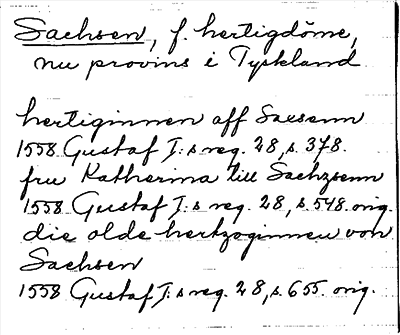 Sachsen, f. hertigdöme,
nu provins i Tyskland
hertiginnen aff Saxsenn
1558 Gustaf I:s reg. 28, s. 378.
fru Katherina till Sachzsenn
1558 Gustaf I:s reg. 28, s. 548. orig.
die olde hertzoginneu von
Sachsen
1558 Gustaf I:s reg. 28, s. 655. orig.